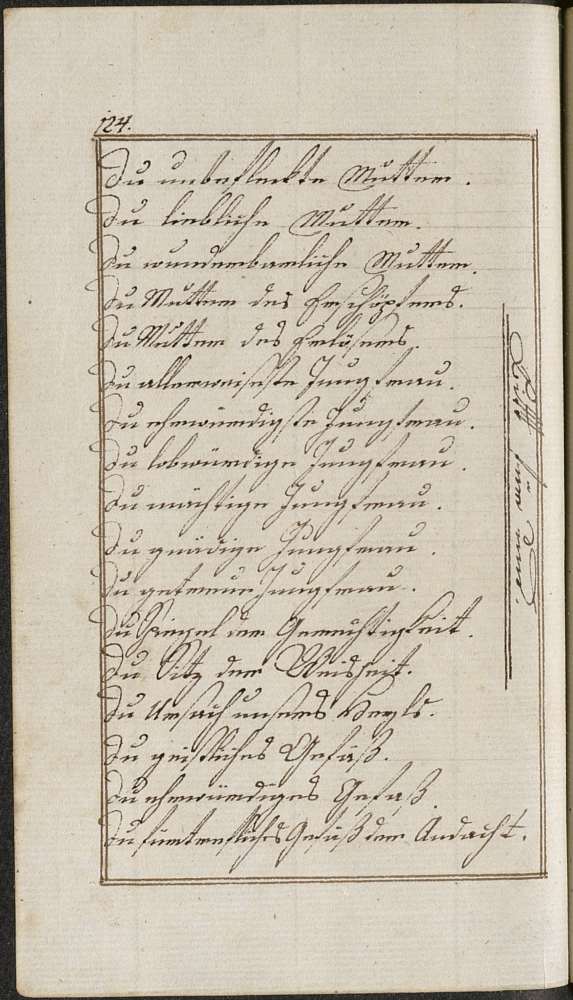 124.
Du unbeflekte Mutter.
Du liebliche Mutter.
Du wunderbarliche Mutter.
Du Mutter des Erschöpfers.
Du Mutter des Erlösers.
Du allerweiseste Jungfrau.
Du ehrwürdigste Jungfrau.
Du lobwürdige Jungfrau.
Du mächtige Jungfrau.
Du gnädige Jungfrau.
Du getreue Jungfrau.
Du Spiegel der Gerechtigkeit.
Du Sitz der Weisheit.
Du Ursach unsers Heyls.
Du geistliches Gefäß.
Du ehrwürdiges Gefäß.
Du fürtrefliches Gefäß der Andacht.
Bitt für uns